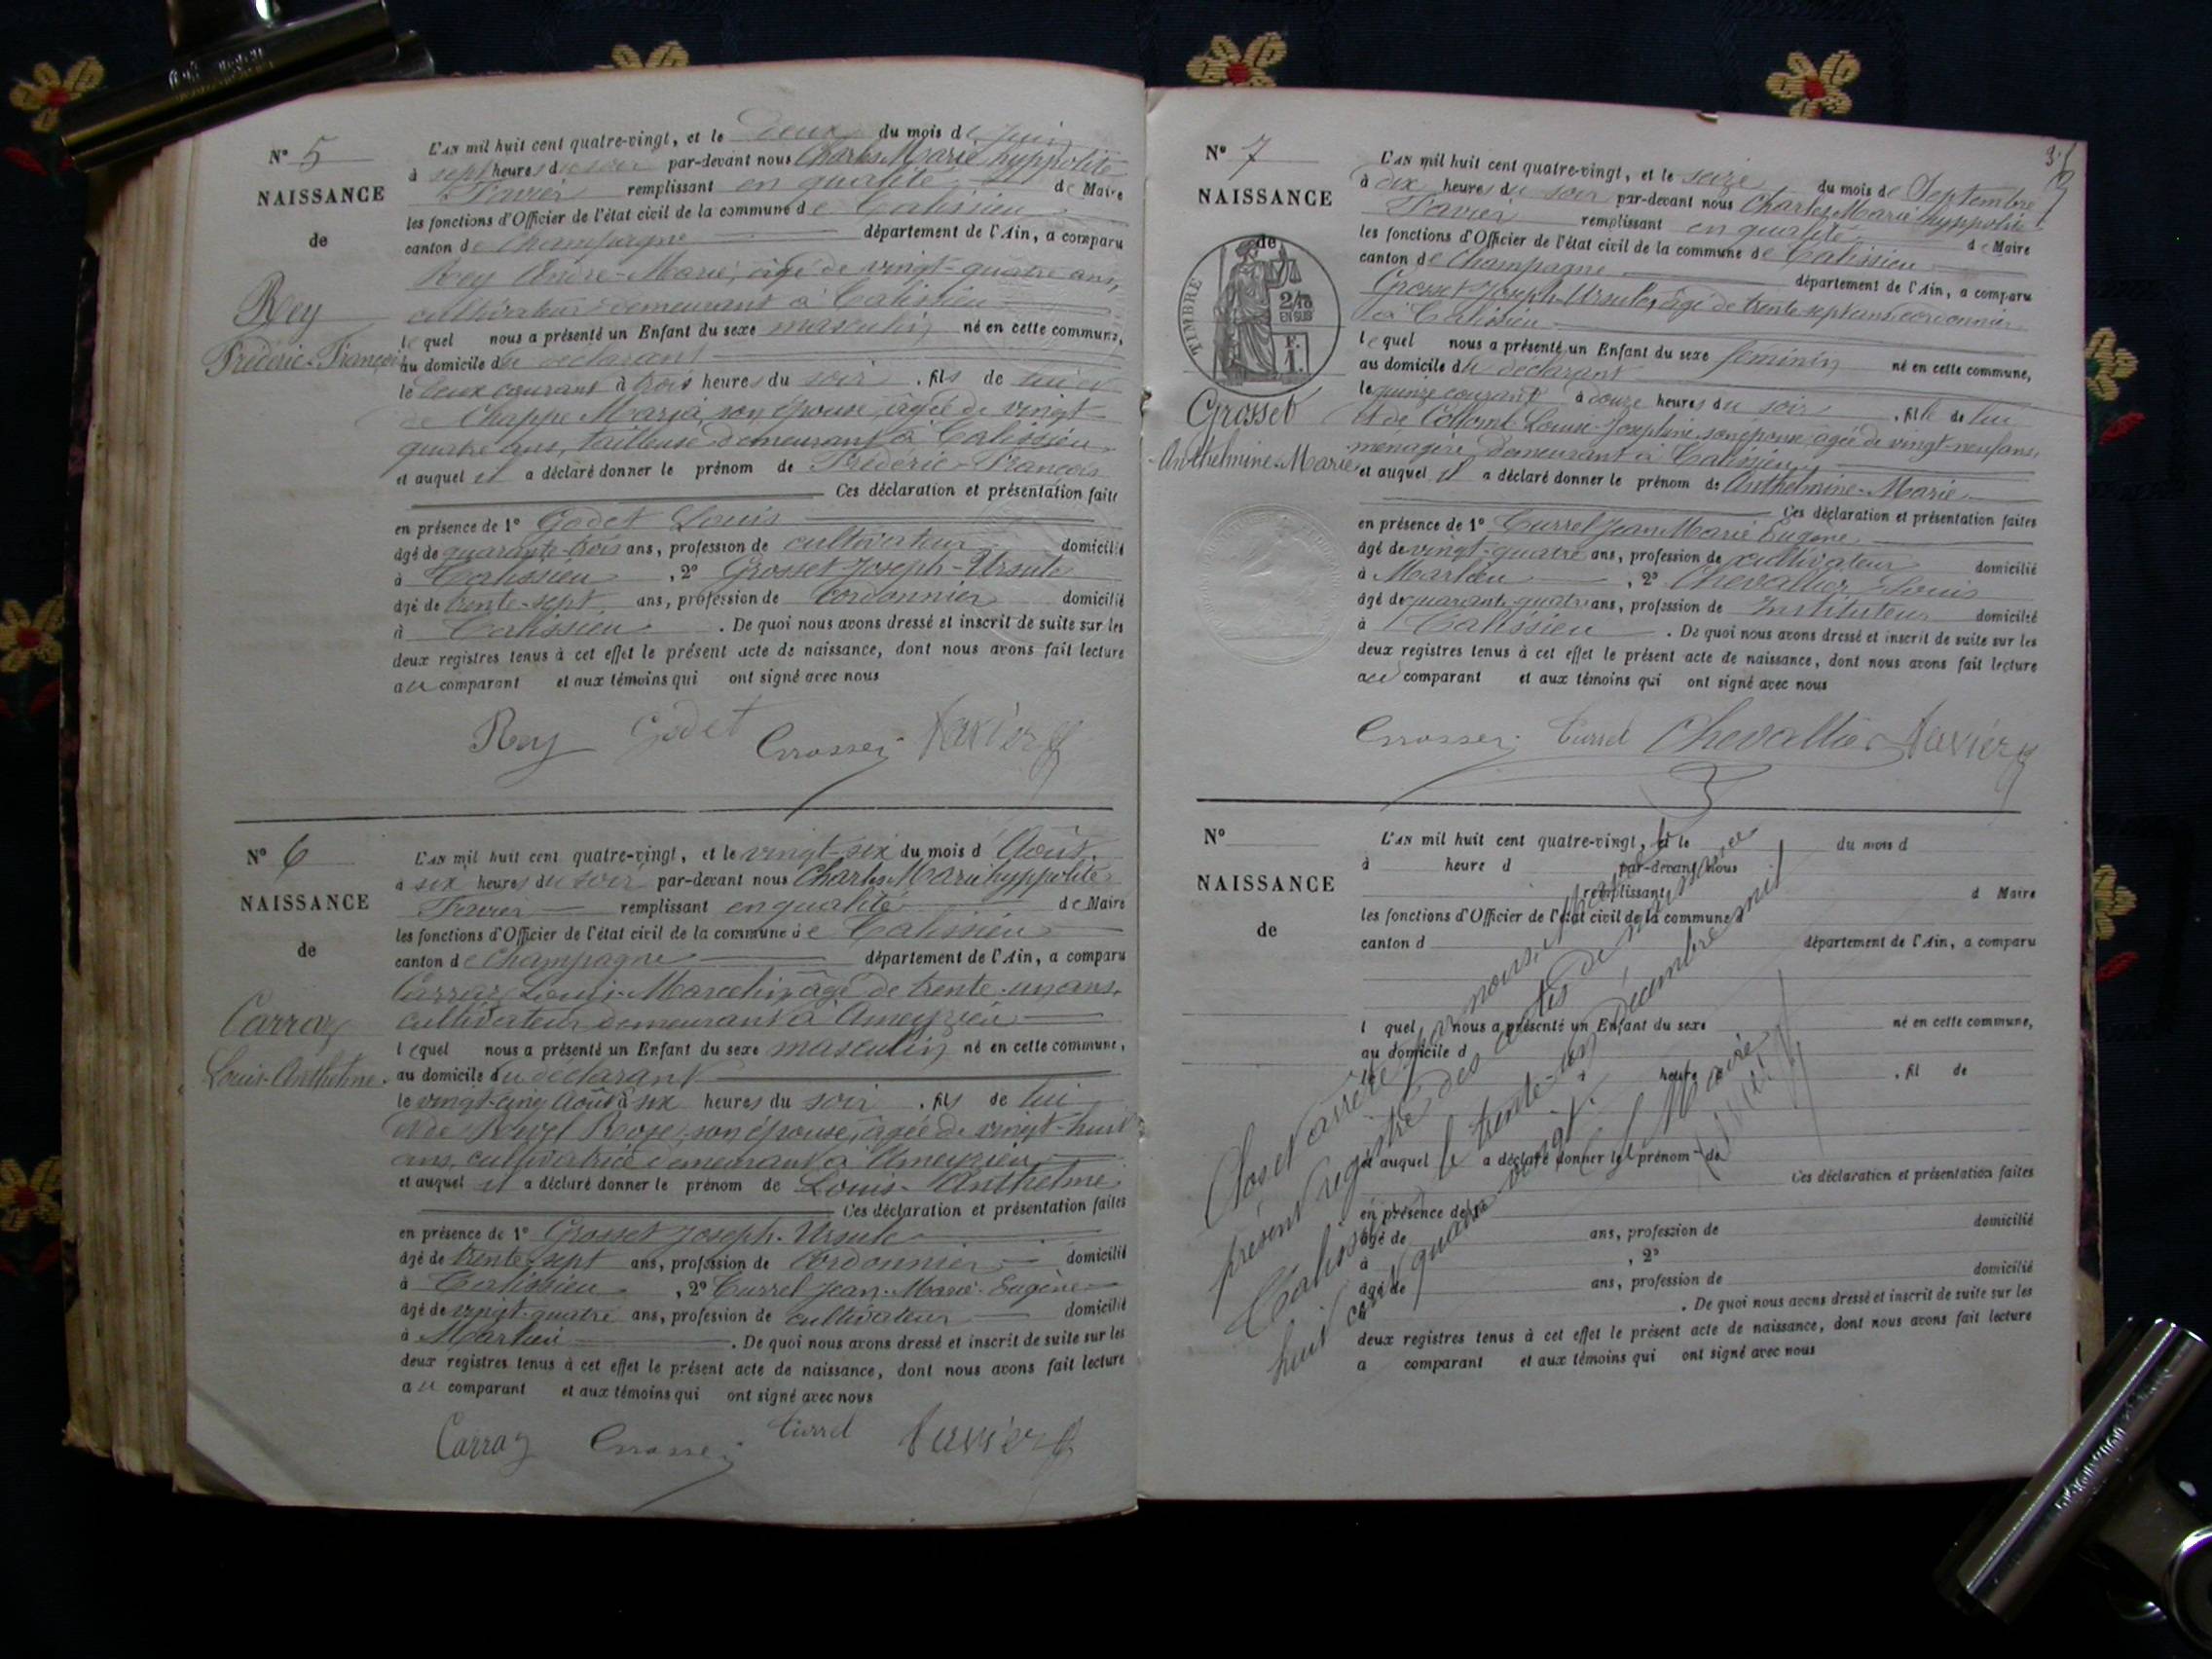 N° 5
NAISSANCE
de
Rey
Frédéric-François
L'AN mil huit cent quatre-vingt, et le deux du mois de Juin
à sept heures du soir par-devant nous Charles Marie hyppolite
Favier remplissant en qualité de Maire
les fonctions d'Officier de l'état civil de la commune de Talissieu
canton de Champagne département de l'Ain, a comparu
Rey André-Marie, âgé de vingt-quatre ans,
cultivateur demeurant à Talissieu
lequel nous a présenté un Enfant du sexe masculin né en cette commune,
au domicile du déclarant
le deux courant à trois heures du soir, fils de lui et
de Chappe Maria, son épouse, âgée de vingt
quatre ans, tailleuse demeurant à Talissieu
et auquel il a déclaré donner le prénom de Frédéric-François
Ces déclaration et présentation faites
en présence de 1° Godet Louis
âgé de quarante-trois ans, profession de cultivateur domicilié
à Talissieu, 2° Grosset Joseph-Ursule
âgé de trente-sept ans, profession de Cordonnier domicilié
à Talissieu. De quoi nous avons dressé et inscrit de suite sur les
deux registres tenus à cet effet le présent acte de naissance, dont nous avons fait lecture
au comparant et aux témoins qui ont signé avec nous
Rey Godet Grosset Favier
N° 6
NAISSANCE
de
Carraz
Louis-Anthelme
L'AN mil huit cent quatre-vingt, et le vingt-six du mois d Août
à six heures du soir par-devant nous Charles Marie hyppolite
Favier remplissant en qualité de Maire
les fonctions d'Officier de l'état civil de la commune de Talissieu
canton de Champagne département de l'Ain, a comparu
Carraz Louis-Marcelin âgé de trente-un ans,
cultivateur demeurant à Ameyzieu
lequel nous a présenté un Enfant du sexe masculin né en cette commune,
au domicile du déclarant
le vingt-cinq Août à six heures du soir, fils de lui
et de Rose, son épouse, âgée de vingt-huit
ans, cultivatrice demeurant à Ameyzieu
et auquel il a déclaré donner le prénom de Louis-Anthelme
Ces déclaration et présentation faites
en présence de 1° Grosset Joseph-Ursule
âgé de trente-sept ans, profession de Cordonnier domicilié
à Talissieu, 2° Currel Jean-Marie-Eugène
âgé de vingt-quatre ans, profession de cultivateur domicilié
à Marlieu. De quoi nous avons dressé et inscrit de suite sur les
deux registres tenus à cet effet le présent acte de naissance, dont nous avons fait lecture
au comparant et aux témoins qui ont signé avec nous
Carraz Grosset Currel Favier
N° 7
NAISSANCE
de
TIMBRE
2/10
EN SUS
F.
1.
Grosset
Anthelmine-Marie
L'AN mil huit cent quatre-vingt, et le seize du mois de Septembre
à dix heures du soir par-devant nous Charles Marie hyppolite
Favier remplissant en qualité de Maire
les fonctions d'Officier de l'état civil de la commune de Talissieu
canton de Champagne département de l'Ain, a comparu
Grosset Joseph-Ursule, âgé de trente-sept ans, cordonnier
à Talissieu
lequel nous a présenté un Enfant du sexe féminin né en cette commune,
au domicile du déclarant
le quinze courant à douze heures du soir, fille de lui
et de Collomb Louise-Joséphine, son épouse, âgée de vingt-neuf ans,
ménagère, demeurant à Talissieu
et auquel il a déclaré donner le prénom de Anthelmine-Marie
Ces déclaration et présentation faites
en présence de 1° Currel Jean Marie Eugène
âgé de vingt-quatre ans, profession de cultivateur domicilié
à Marlieu, 2° Chevallier Louis
âgé de quarante-quatre ans, profession de Instituteur domicilié
à Talissieu. De quoi nous avons dressé et inscrit de suite sur les
deux registres tenus à cet effet le présent acte de naissance, dont nous avons fait lecture
au comparant et aux témoins qui ont signé avec nous
Grosset Currel Chevallier Favier
N°
NAISSANCE
de
L'AN mil huit cent quatre-vingt, et le du mois d
à heure d par-devant nous
remplissant d Maire
les fonctions d'Officier de l'état civil de la commune d
canton d département de l'Ain, a comparu
l quel nous a présenté un Enfant du sexe né en cette commune,
au domicile d
le à heure d , fil de
et auquel a déclaré donner le prénom de
Ces déclaration et présentation faites
en présence de 1°
âgé de ans, profession de domicilié
à , 2°
âgé de ans, profession de domicilié
à . De quoi nous avons dressé et inscrit de suite sur les
deux registres tenus à cet effet le présent acte de naissance, dont nous avons fait lecture
a comparant et aux témoins qui ont signé avec nous
Clos et arrêté par nous, le
présent registre des actes de naissance
Talissieu le trente-un Décembre mil
huit cent quatre-vingt.
Le Maire